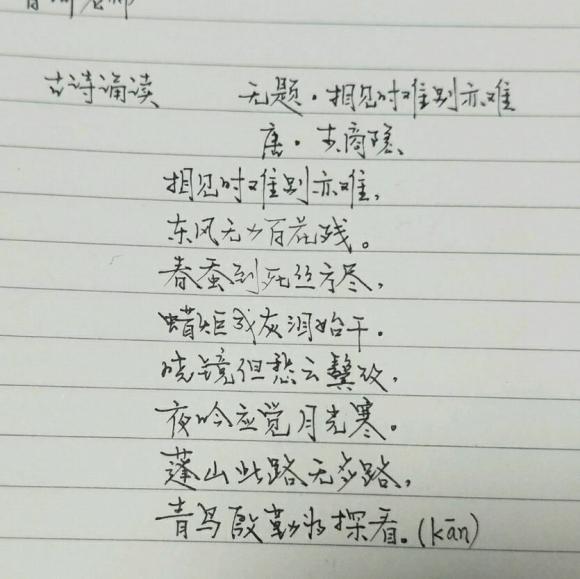 古诗诵读 无题·相见时难别亦难
唐·李商隐
相见时难别亦难,
东风无力百花残。
春蚕到死丝方尽,
蜡炬成灰泪始干。
晓镜但愁云鬓改,
夜吟应觉月光寒。
蓬山此路无多路,
青鸟殷勤为探看。(kān)